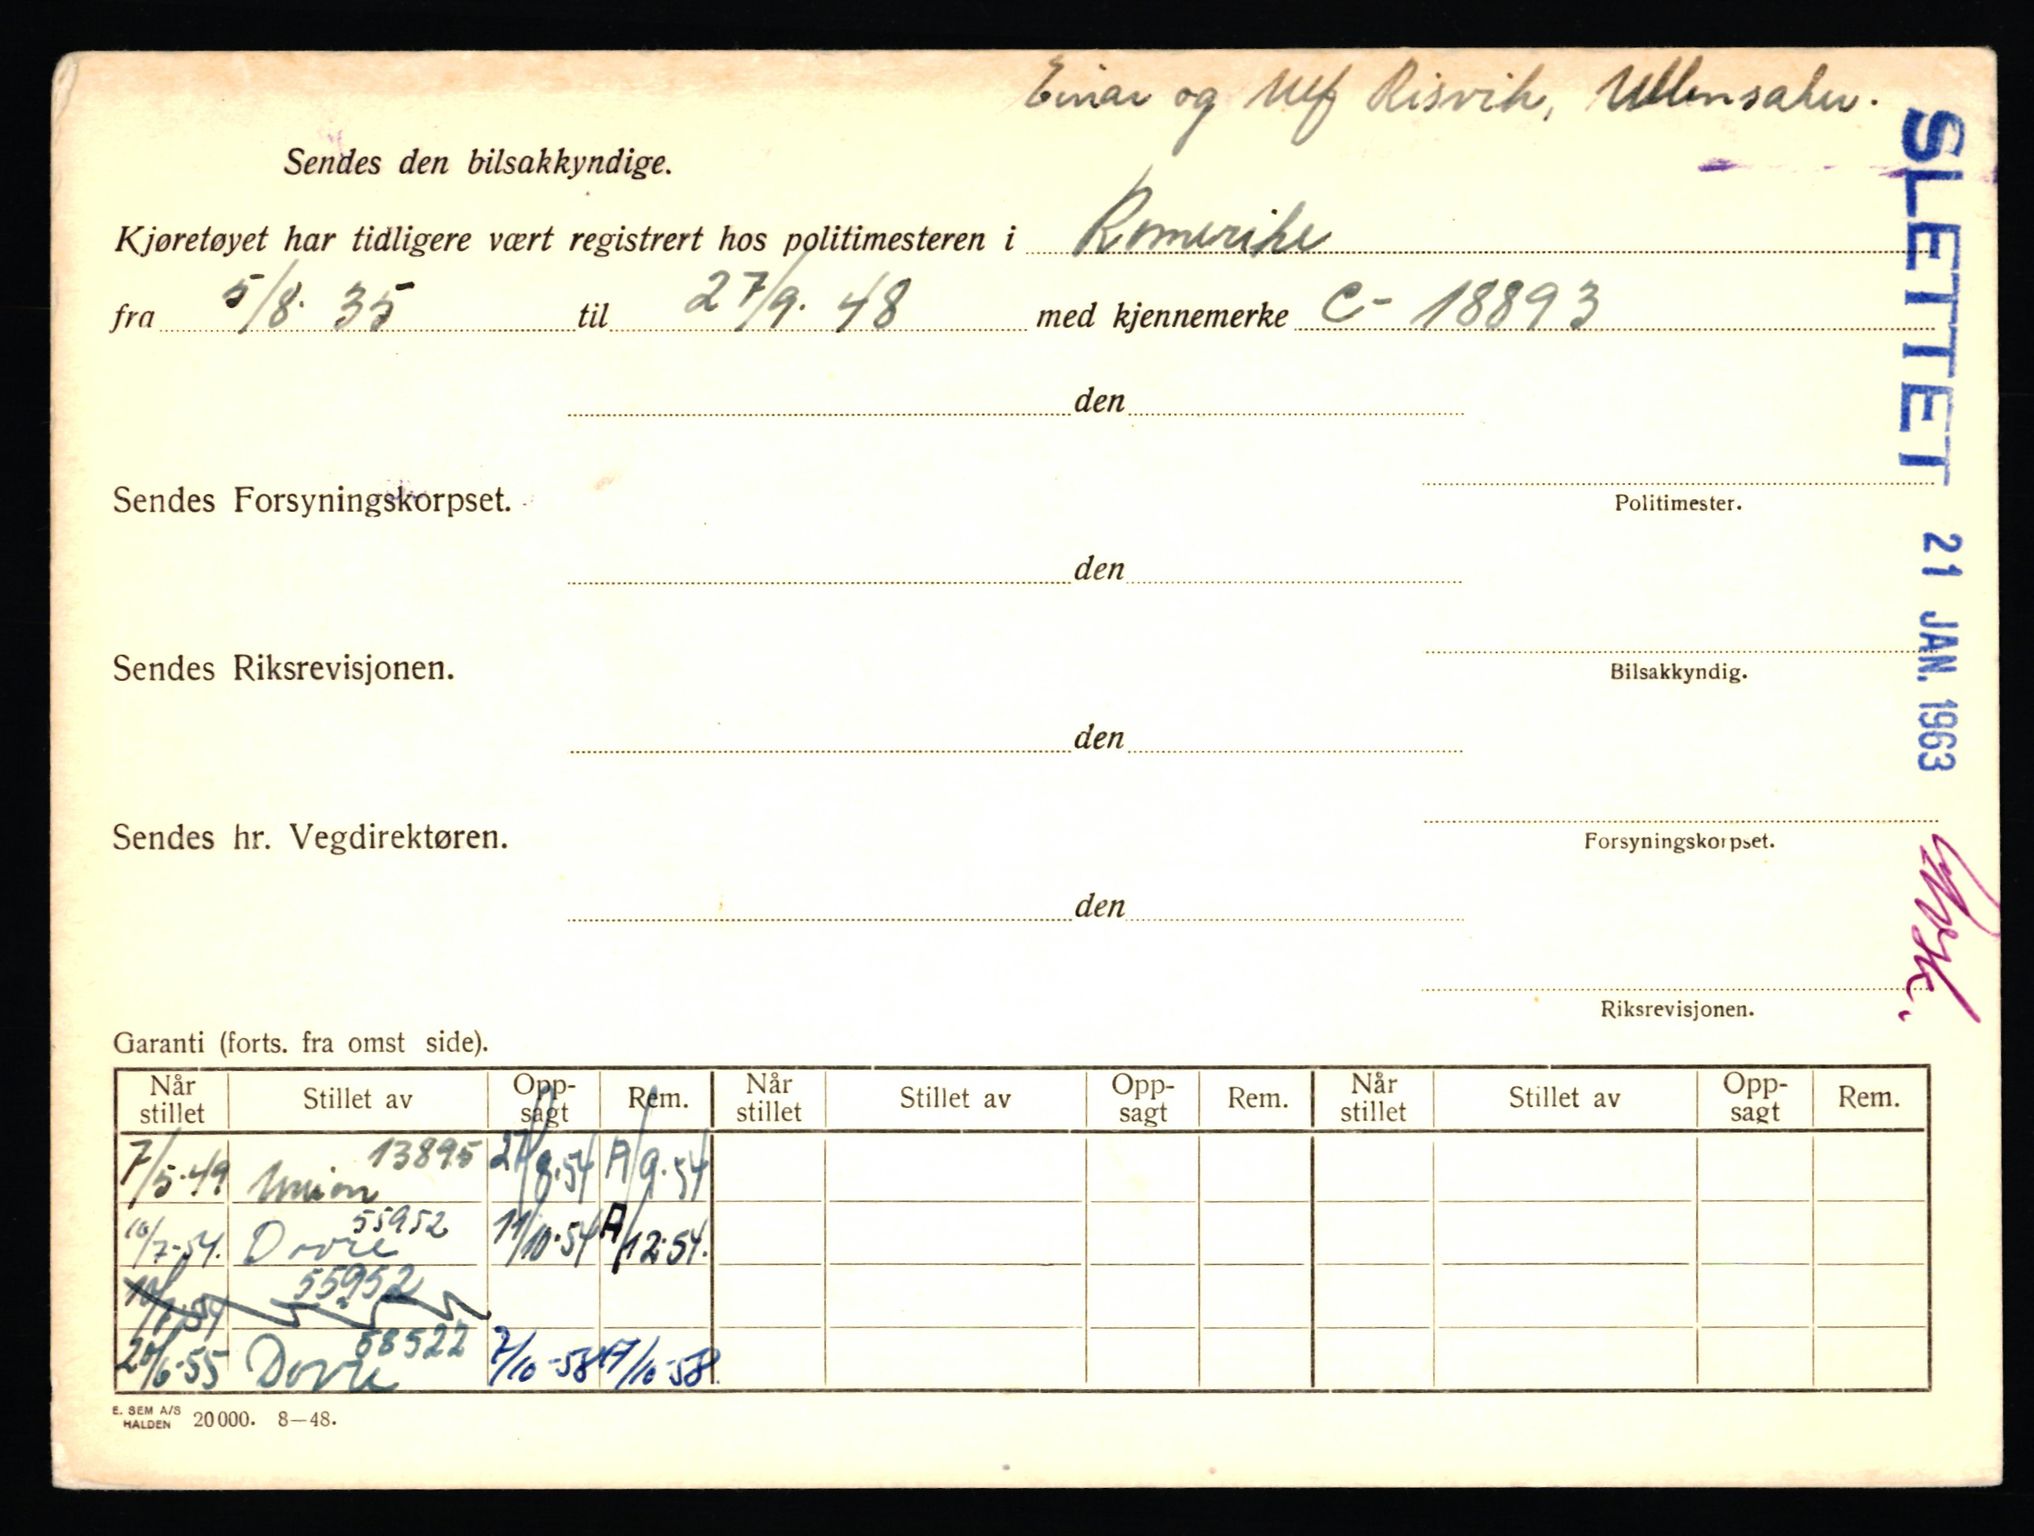 Einar og Ulf Risvik, Ullensaker.
Sendes den bilsakkyndige.
Kjøretøyet har tidligere vært registrert hos politimesteren i Romerike
fra 5/8. 35 til 27/9. 48 med kjennemerke C- 18893
den
Sendes Forsyningskorpset.
Politimester.
den
Sendes Riksrevisjonen.
Bilsakkyndig.
den
Sendes hr. Vegdirektøren.
Forsyningskorpset.
den
Riksrevisjonen.
SLETTET 21 JAN. 1963
Garanti (forts. fra omst side).
Når stillet Stillet av Opp-sagt Rem. Når stillet Stillet av Opp-sagt Rem. Når stillet Stillet av Opp-sagt Rem.
7/5-49 Union 13895 27/8-54 A/9-54
10/7-54. Dovre 55952 11/10-54 A/12-54.
10/7-54 55952
20/6-55 Dovre 58522 2/10-58 17/10-58.
E. SEM A/S
HALDEN 20000. 8—48.